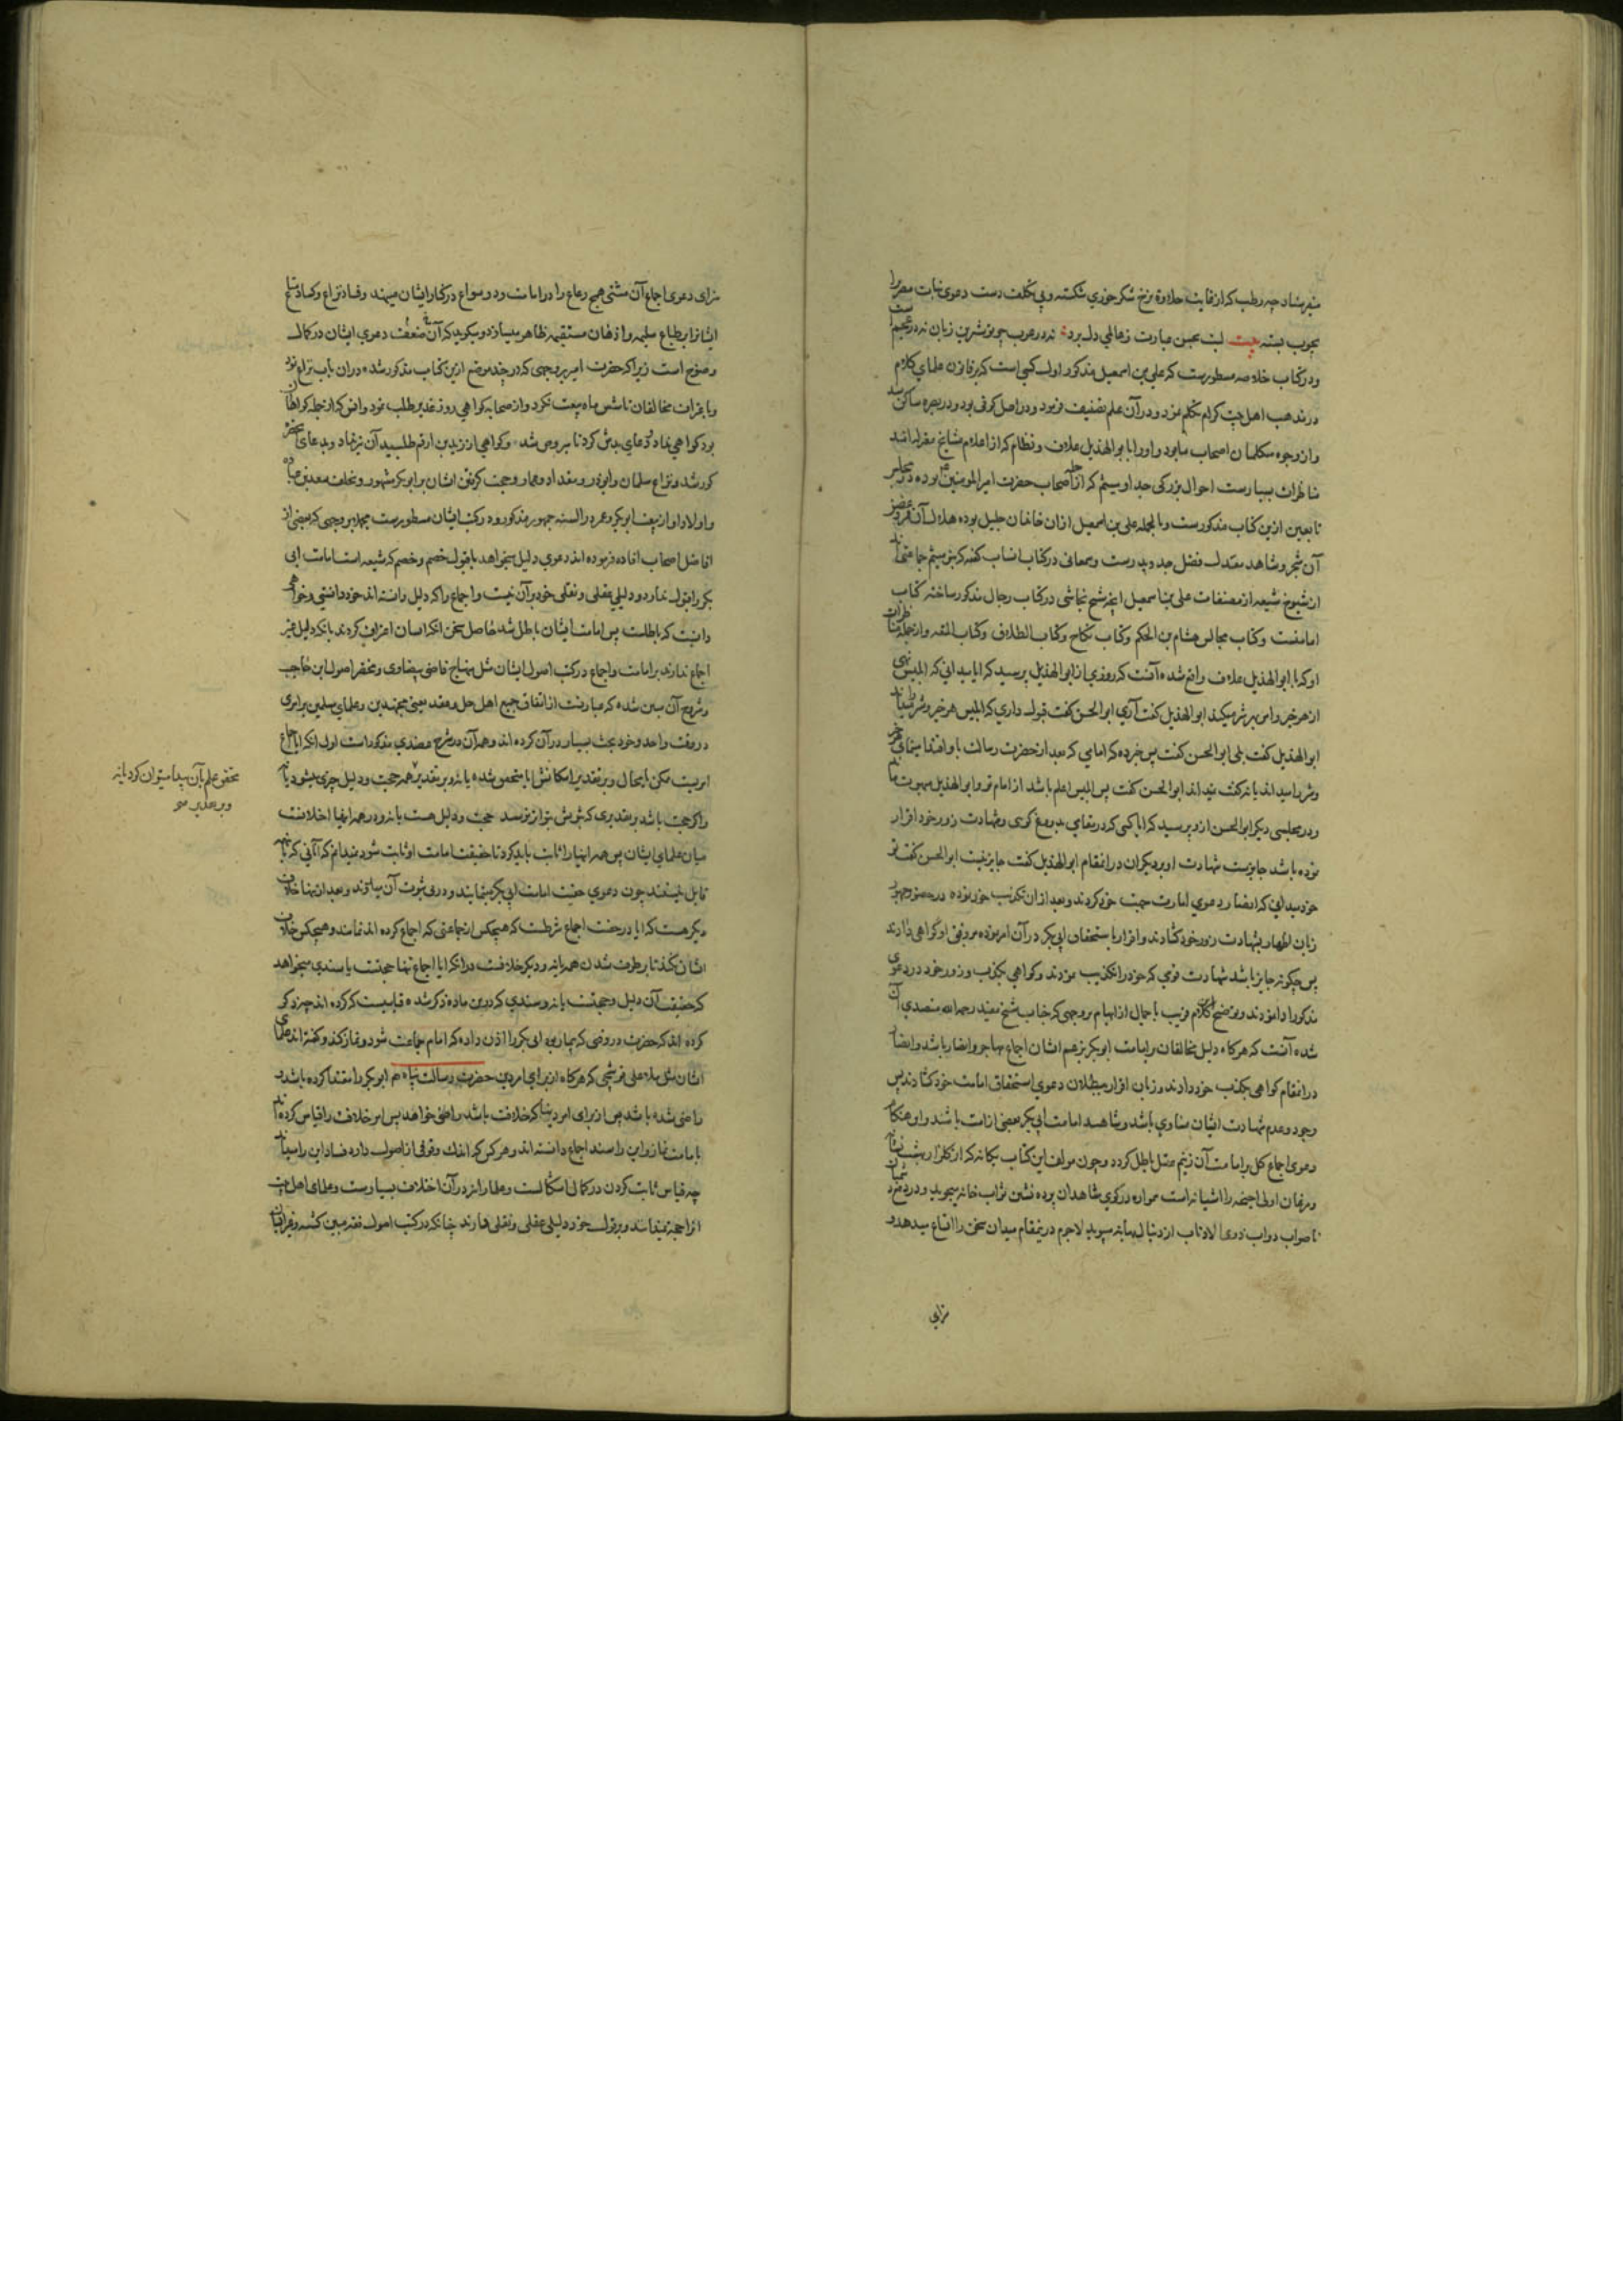 میرساند چه رطب که از غایت حلاوة نرخ شکر خوزي شکسته وبي تکلف دست دعوی نبات مصر را
بچوب بسته بیت لبت بحسن عبارت زعالمي دل برد نه در عرب چو تو شیرین زبان نه در عجم است
ودر کتاب خلاصه مسطورست که علي بن اسمعیل مذکور اول کسي است که بر قانون علماي کلام
در مذهب اهل بیت کرام تکلم نمود ودر آن علم تصنیف فرمود ودر اصل کوفی بود ودر بصره ساکن شد
واز وجوه متکلمان اصحاب ما بود واو را با ابو الهذیل علاف ونظام که از اعلام مشایخ معتزله اند
مناظرات بسیارست احوال بزرکی جد او میثم که از اصحاب حضرت امیر المومنین بوده در مجلس
تابعین ازین کتاب مذکورست وبالجمله علی بن اسمعیل از ان خاندان جلیل بوده
آن شجر وشاهد معتدل فضل جد وپدرست وسمعانی در کتاب انساب کفته که بنو میثم جماعتی اند
از شیوخ شیعه از مصنفات علی بن اسمعیل آنچه شیخ نجاشی در کتاب رجال مذکور ساخته کتاب
امامتست وکتاب مجالس هشام بن الحکم وکتاب نکاح وکتاب الطلاق وکتاب المتعه واز جمله مناظرات
او که با ابو الهذیل علاف واقع شده آنست که روزي از ابو الهذیل پرسید که ایا میدانی که ابلیس نهی
از هر خیر وامر بهر شر میکند ابو الهذیل کفت آري ابو الحسن کفت قبول داري که ابلیس هر خیر وشر را میداند
ابو الهذیل کفت بلی ابو الحسن کفت پس خبر ده که امامي که بعد از حضرت رسالت باو اقتدا مینمایي خیر
وشر را میداند یا نه کفت نمیداند ابو الحسن کفت پس ابلیس اعلم باشد از امام تو وابو الهذیل مبهوت ماند
ودر مجلسی دیکر ابو الحسن ازو پرسید که ایا کسی که در مقامي بدروغ کویی وشهادت زور خود اقرار
نموده باشد جایزست شهادت او بر دیکران در انمقام ابو الهذیل کفت جایز نیست ابو الحسن کفت تو
خود میدانی که انصار دعوي امارت جهت خود کردند وبعد از ان تکذیب خود نموده در حضور جمهور
زبان اظهار بشهادت زور خود کشادند واقرار باستحقاق ابی بکر در آن امر نموده بر وفق او کواهی دادند
پس چکونه جایز باشد شهادت قومي که خود را تکذیب نمودند وکواهي بکذب وزور خود در دعوی
مذکور ادا نمودند وتوضیح کلام قریب باجمال از ابهام بر وجهی که جناب شیخ مفید رحمه الله متصدي آن
شده آنست که هرکاه دلیل مخالفان بر امامت ابو بکر بزعم ایشان اجماع مهاجر وانصار باشد وانصار
در انمقام کواهی بکذب خود دادند وزبان اقرار ببطلان دعوي استحقاق امامت خود کشادند پس
وجود وعدم شهادت ایشان مساوي باشد وشاهد امامت ابی بکر بعضی از امت باشند
دعوی اجماع کل بر امامت آن باطل کردد وچون مولف این کتاب بیکانه که از کلزار بهشت نشان
ومرغان اولی اجنحه را اشیانه است همواره در کوي شاهدان پرده نشین نواب خانه میجوید ودر دم
ناصواب دواب ذوی الاذناب از دنبال بهانه میپوید لاجرم در ینمقام میدان سخن را اتساع میدهد و
سزای
سزای دعوی اجماع آن مشتی همج رعاع را در امامت ود وسواع در کنار ایشان مینهد وفساد نزاع وکساد متاع
ایشانرا بر طباع سلیمه واذهان مستقیمه ظاهر میسازد ومیکوید که آن ضعف دعوي ایشان در کمال
وضوح است زیرا که حضرت امیر بر وجهی که در چند موضع ازین کتاب مذکور شد در ان باب نزاع نمود
وباعتراف مخالفان تا شش ماه بیعت نکرد واز صحابه کواهي روز غدیر طلب نمود وانس که از جمله کواهان
بود کواهي نداد ودعاي بدش کرد تا مبروص شد وکواهي از زید بن ارقم طلبید آن نیز نداد وبدعای حضرت
کور شد ونزاع سلمان وابو ذر ومقداد وعمار وحجت کرفتن ایشان بر ابو بکر مشهور وتخلف سعد بن عباده
واولاد او از بیعت ابو بکر وعمر در السنه جمهور مذکور ودر کتب ایشان مسطورست مجملا بر وجهی که بعضی از
افاضل اصحاب افاده فرموده اند دعوي دلیل میخواهد یا قبول خصم وخصم که شیعه است امامت ابی
بکر را قبول ندارد ودلیلی عقلی ونقلی خود بر آن نیست واجماع را که دلیل دانسته اند خود دانستی وخواهی
دانست که باطلست پس امامت ایشان باطل شد حاصل سخن انکه ایشان اعتراف کردند بانکه دلیل غیر
اجماع ندارند بر امامت واجماع در کتب اصول ایشان مثل منهاج قاضی بیضاوی ومختصر اصول ابن حاجب
وشروح آن مبین شده که عبارتست از اتفاق جمیع اهل حل وعقد یعنی مجتهدین وعلماي مسلمین بر امری
در وقت واحد وخود بحث بسیار در آن کرده اند وهم آن در شرح عضدي مذکورست اول انکه ایا اجماع
امریست ممکن یا محال وبر تقدیر امکانش ایا متحقق شده یا نه وبر تقدیر همه حجت ودلیل چیزی میشود یا نه
واکر حجت باشد بر تقدیری که ثبوتش بتواتر نرسد حجت ودلیل هست یا نه ودر همه اینها اختلافست
میان علماي ایشان پس همه اینها را اثبات باید کرد تا حقیقت امامت او ثابت شود نمیدانم که آنانی که
قایل نیستند چون دعوي حقیت امامت ابی بکر مینمایند ودر پی ثبوت آن میافتند وبعد از ینها خلاف
دیکر هست که ایا در حقیت اجماع شرطست که هیچکس از جماعتی که اجماع کرده اند نمانند وهیچکس خلاف
ایشان نکند تا بر طرف شدن همه یا نه ودیکر خلافست در انکه ایا اجماع تنها حجتست یا سندي میخواهد
که حقیقت آن دلیل وحجتست یا نه وسندي که در ین ماده ذکر شده قیاسیست که کرده اند
کرده اند که حضرت در وقتی که بیمار بود ابی بکر را اذن داده که امام جماعت شود ونماز کند وکفته اند علماي
ایشان مثل ملا علی قوشچی که هرکاه از برای امر دین حضرت رسالت پناه هم ابو بکر را مقتدا کرده باشد و
راضی شده باشد پس از برای امر دنیا که خلافت باشد راضی خواهد بود پس امر خلافت را قیاس کرده اند
بامامت نماز واین را سند اجماع دانسته اند وهر کس که اندک وقوفی از اصول دارد فساد این را میداند
چه قیاس ثابت کردن در کمال اشکالست وعلما را نیز در آن اختلاف بسیارست وعلماي اهل بیت
انرا حجت نمیدانند وبر قول خود دلیلی عقلی ونقلی دارند چنانکه در کتب اصول فقه مبین کشته
تحقق علم بآن پیدا میتوان کرد یا نه
وبر تقدیر